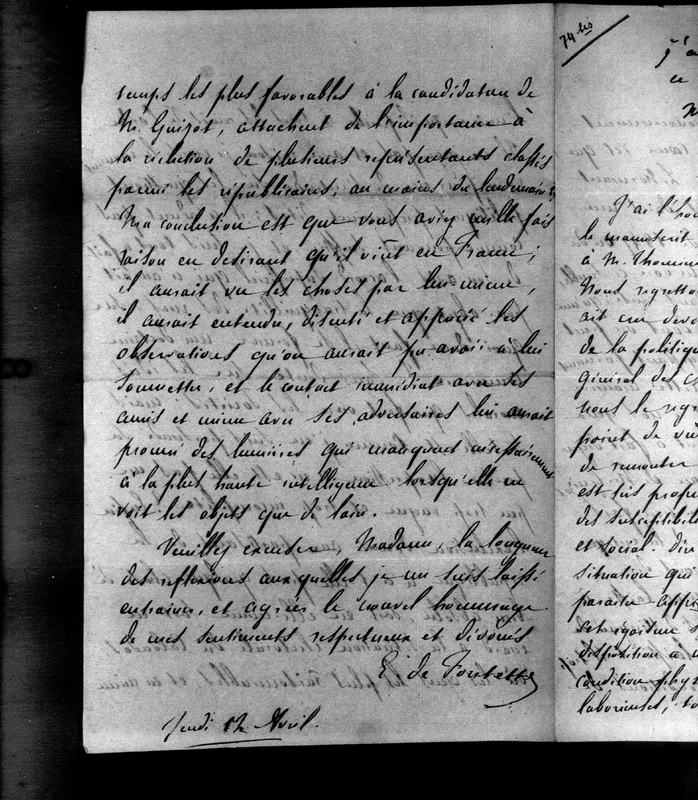 temps les plus favorables à la candidature de
M. Guizot, attachent de l'importance à
la réélection de plusieurs représentants classés
parmi les républicains, au moins du lendemain.
Ma conclusion est que vous aviez mille fois
raison en désirant qu'il vînt en France;
il aurait vu les choses par lui-même,
il aurait entendu, discuté et apprécié les
observations qu'on aurait pu avoir à lui
soumettre, et le contact immédiat avec ses
amis et même avec ses adversaires lui aurait
procuré des lumières qui manquent nécessairement
à la plus haute intelligence lorsqu'elle ne
voit les objets que de loin.
Veuillez excuser, Madame, la longueur
des réflexions auxquelles je me suis laissé
entraîner, et agréer le nouvel hommage
de mes sentiments respectueux et dévoués
E. de
Jeudi 12 Avril.
74 bis
j'a
ce
J'ai l'ho
le manuscrit
à M.
Nous regretto
ait cru devo
de la politiqu
général des c
nous le regr
point de vu
de remonter
est
des susceptibil
et social.
situation qui
paraître appré
cet égoïsme
disposition à
condition phys
laborieuses, to